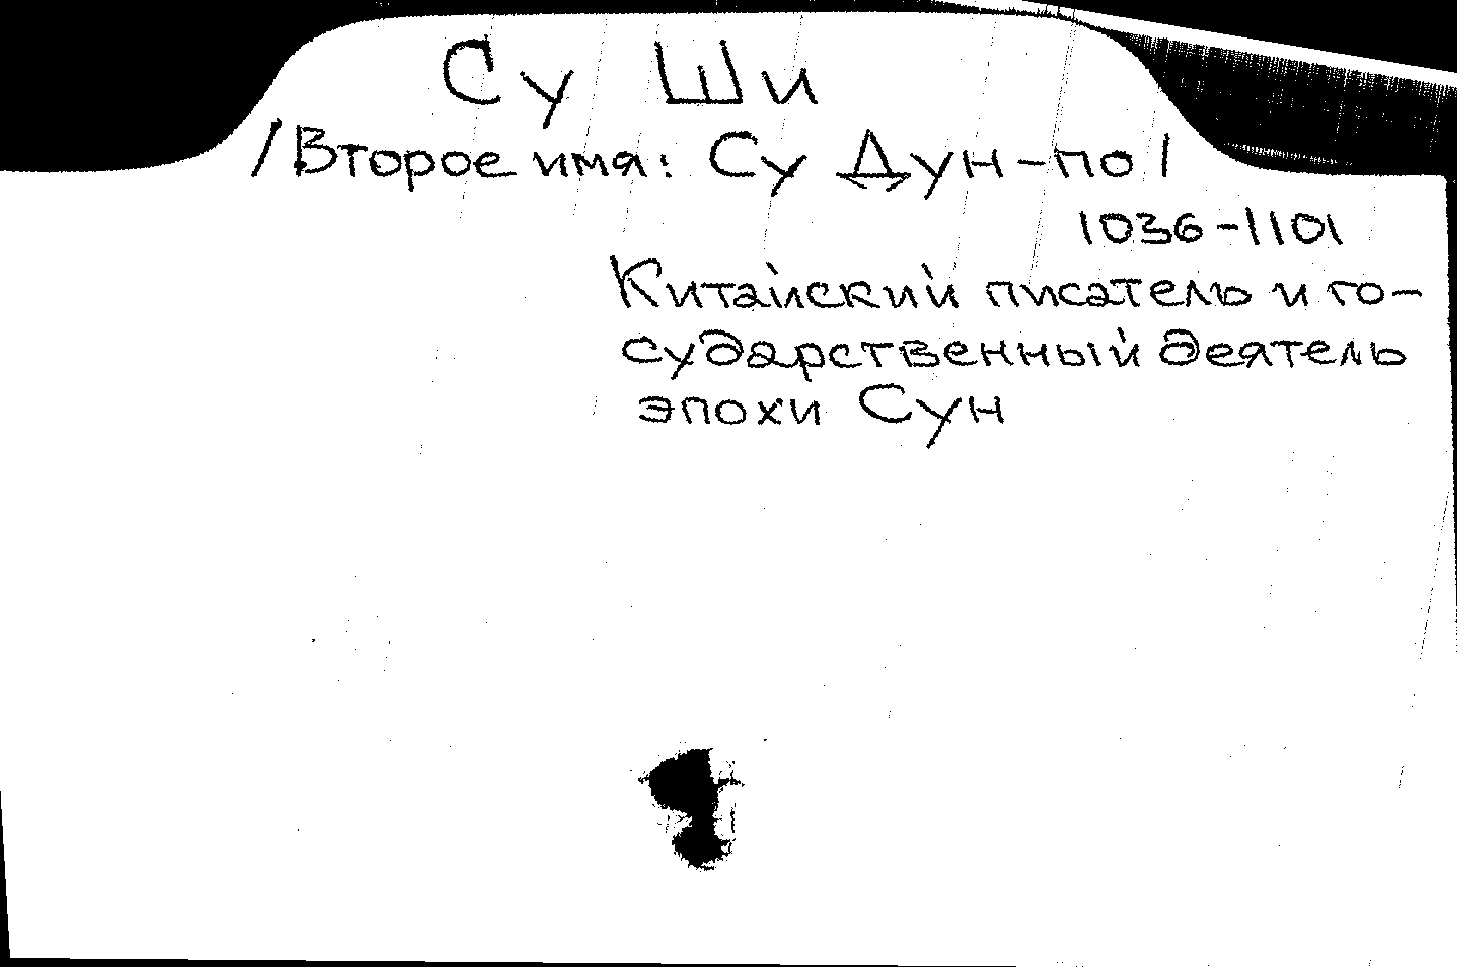 Су Ши
/Второе имя: Су Дун-по/
1036-1101
Китайский писатель и го-
сударственный деятель
эпохи Сун